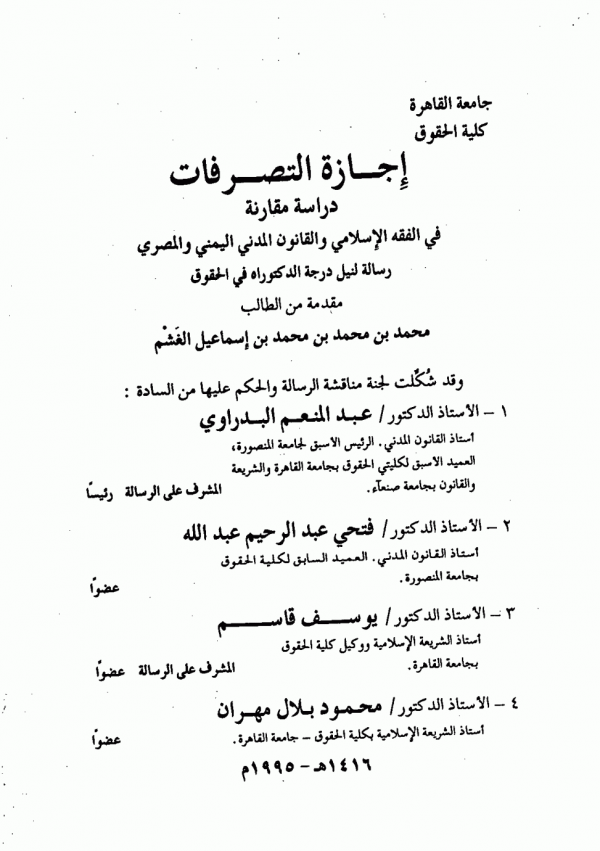 جامعة القاهرة
كلية الحقوق
إجازة التصرفات
دراسة مقارنة
في الفقه الإسلامي والقانون المدني اليمني والمصري
رسالة لنيل درجة الدكتوراه في الحقوق
مقدمة من الطالب
محمد بن محمد بن محمد بن إسماعيل الغَشْم
وقد شُكِّلت لجنة مناقشة الرسالة والحكم عليها من السادة :
١ – الأستاذ الدكتور/ عبد المنعم البدراوي
أستاذ القانون المدني. الرئيس الأسبق لجامعة المنصورة،
العميد الأسبق لكليتي الحقوق بجامعة القاهرة والشريعة
والقانون بجامعة صنعآء. المشرف على الرسالة رئيسًا
٢ – الأستاذ الدكتور/ فتحي عبد الرحيم عبد الله
أستاذ القانون المدني. العميد السابق لكلية الحقوق
بجامعة المنصورة. عضوًا
٣ – الأستاذ الدكتور/ يوسف قاسم
أستاذ الشريعة الإسلامية ووكيل كلية الحقوق
بجامعة القاهرة. المشرف على الرسالة عضوًا
٤ – الأستاذ الدكتور/ محمود بلال مهران
أستاذ الشريعة الإسلامية بكلية الحقوق – جامعة القاهرة. عضوًا
١٤١٦هـ – ١٩٩٥م